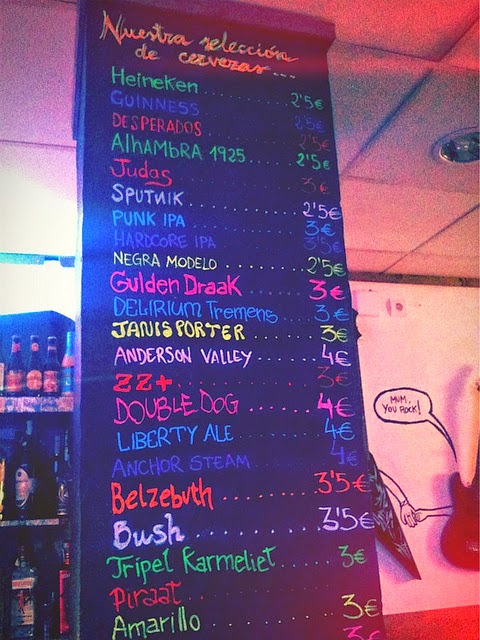 Nuestra selección
de cervezas...
Heineken 2'5€
GUINNESS 2'5€
DESPERADOS 2'5€
ALHAMBRA 1925 2'5€
Judas 3€
SPUTNIK 2'5€
PUNK IPA 3€
HARDCORE IPA 3'5€
NEGRA MODELO 2'5€
Gulden Draak 3€
DELIRIUM Tremens 3€
JANIS PORTER 3€
ANDERSON VALLEY 4€
ZZ+ 3€
DOUBLE DOG 4€
LIBERTY ALE 4€
ANCHOR STEAM 4€
Belzebuth 3'5€
Bush 3'5€
Tripel Karmeliet 3€
Piraat
Amarillo 3€
3€
MUM,
YOU ROCK!